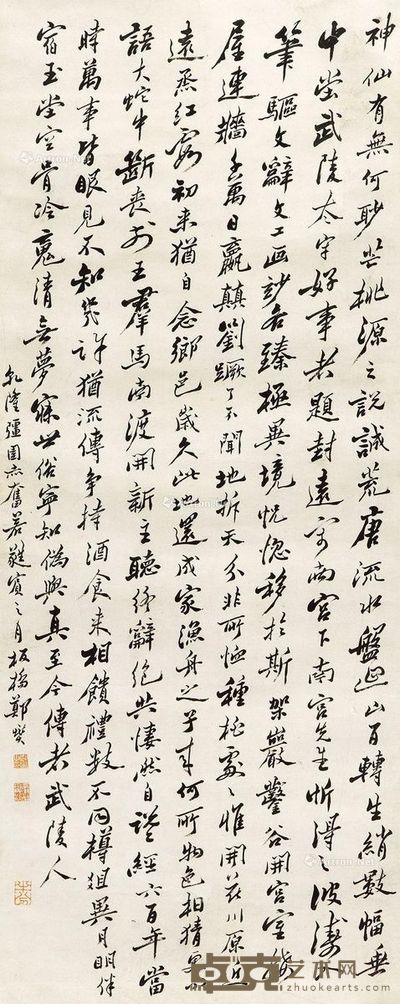 神仙有無何眇芒桃源之說誠荒唐流水盤迴山百轉生綃數幅垂
中堂武陵太守好事者題封遠寄南宮下南宮先生忻得之波濤入
筆驅文辭文工画妙各臻極異境恍惚移於斯架巖鑿谷開宮室接
屋連牆千萬日嬴顛劉蹶了不聞地拆天分非所恤種桃處處惟開花川原近
遠烝紅霞初來猶自念鄉邑歲久此地還成家漁舟之子來何所物色相猜更問
語大蛇中斷喪前王羣馬南渡開新主聽終辭絕共悽然自說經六百年當
時萬事皆眼見不知幾許猶流傳爭持酒食來相饋禮數不同樽俎異月明伴
宿玉堂空骨冷魂清無夢寐世俗寧知偽與真至今傳者武陵人
乾隆彊圉赤奮若蕤賓之月板橋鄭燮
卓克艺术网
zhuokearts.com